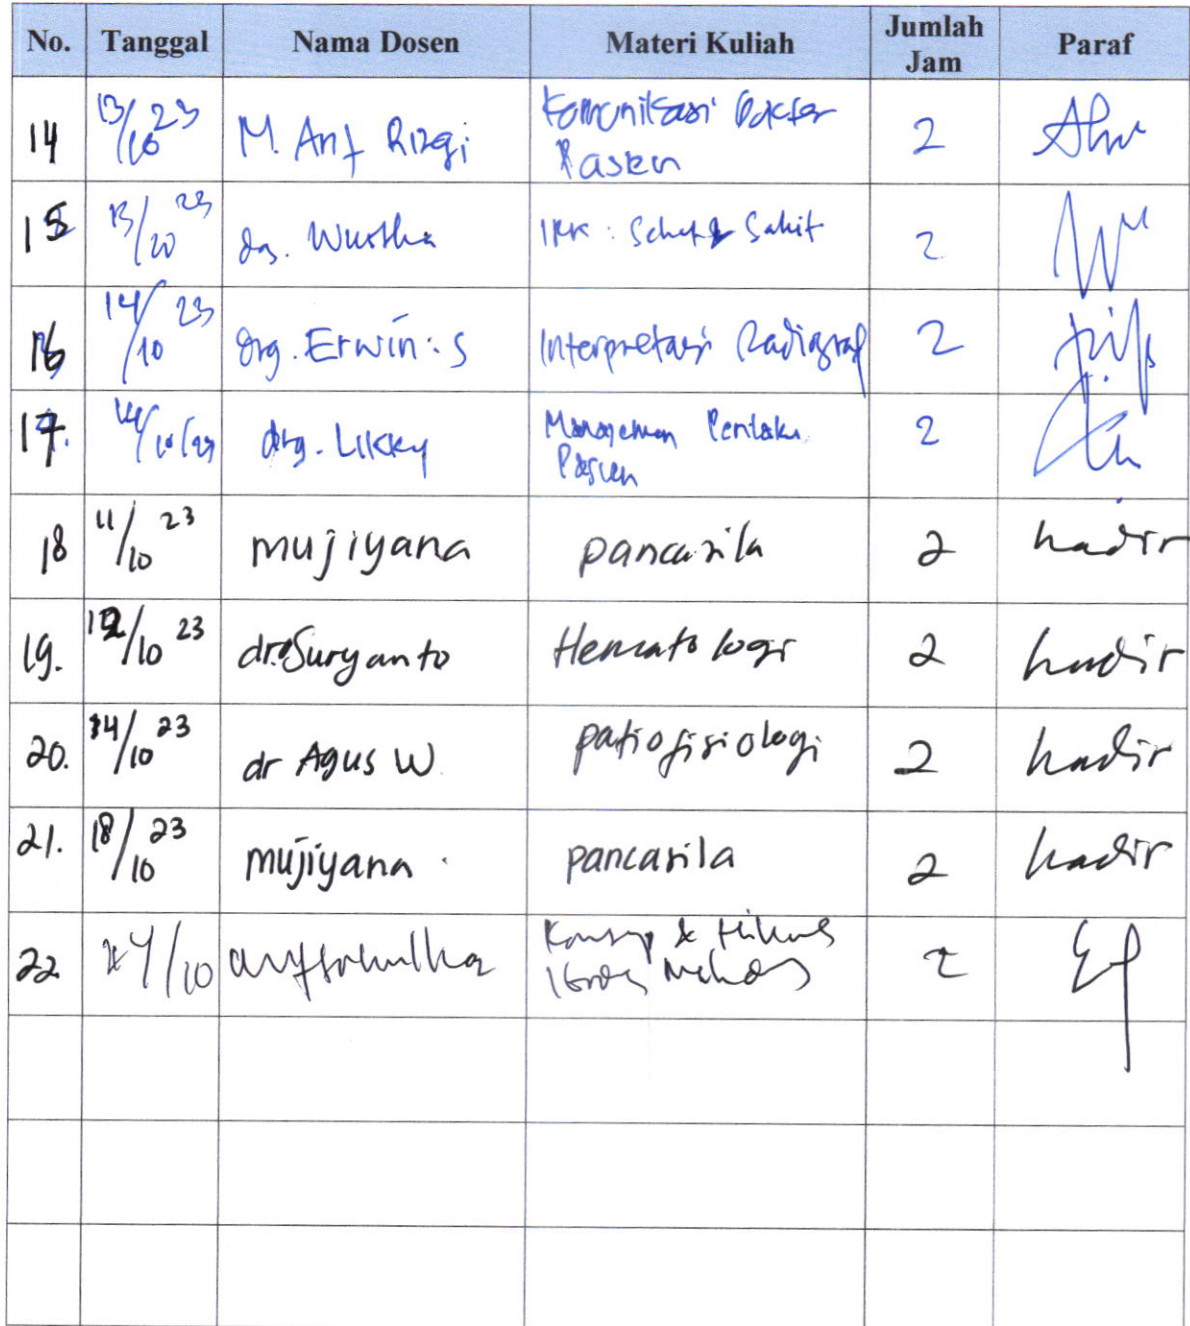 No. Tanggal Nama Dosen Materi Kuliah Jumlah Jam Paraf
14 13/10 23 M. Arif Rizqi Komunikasi Dokter 2
Pasien
15 13/10 23 drg. Wustha IKK : Sehat & Sakit 2
16 14/10 23 drg. Erwin . S Interpretasi Radiograf 2
17. 14/10/23 drg. Likky Manajemen Perilaku 2
Pasien
18 11/10 23 mujiyana pancasila 2 hadir
19. 12/10 23 dr. Suryanto Hematologi 2 hadir
20. 14/10 23 dr Agus W. patiofisiologi 2 hadir
21. 18/10 23 mujiyana . pancasila 2 hadir
22 /10 2